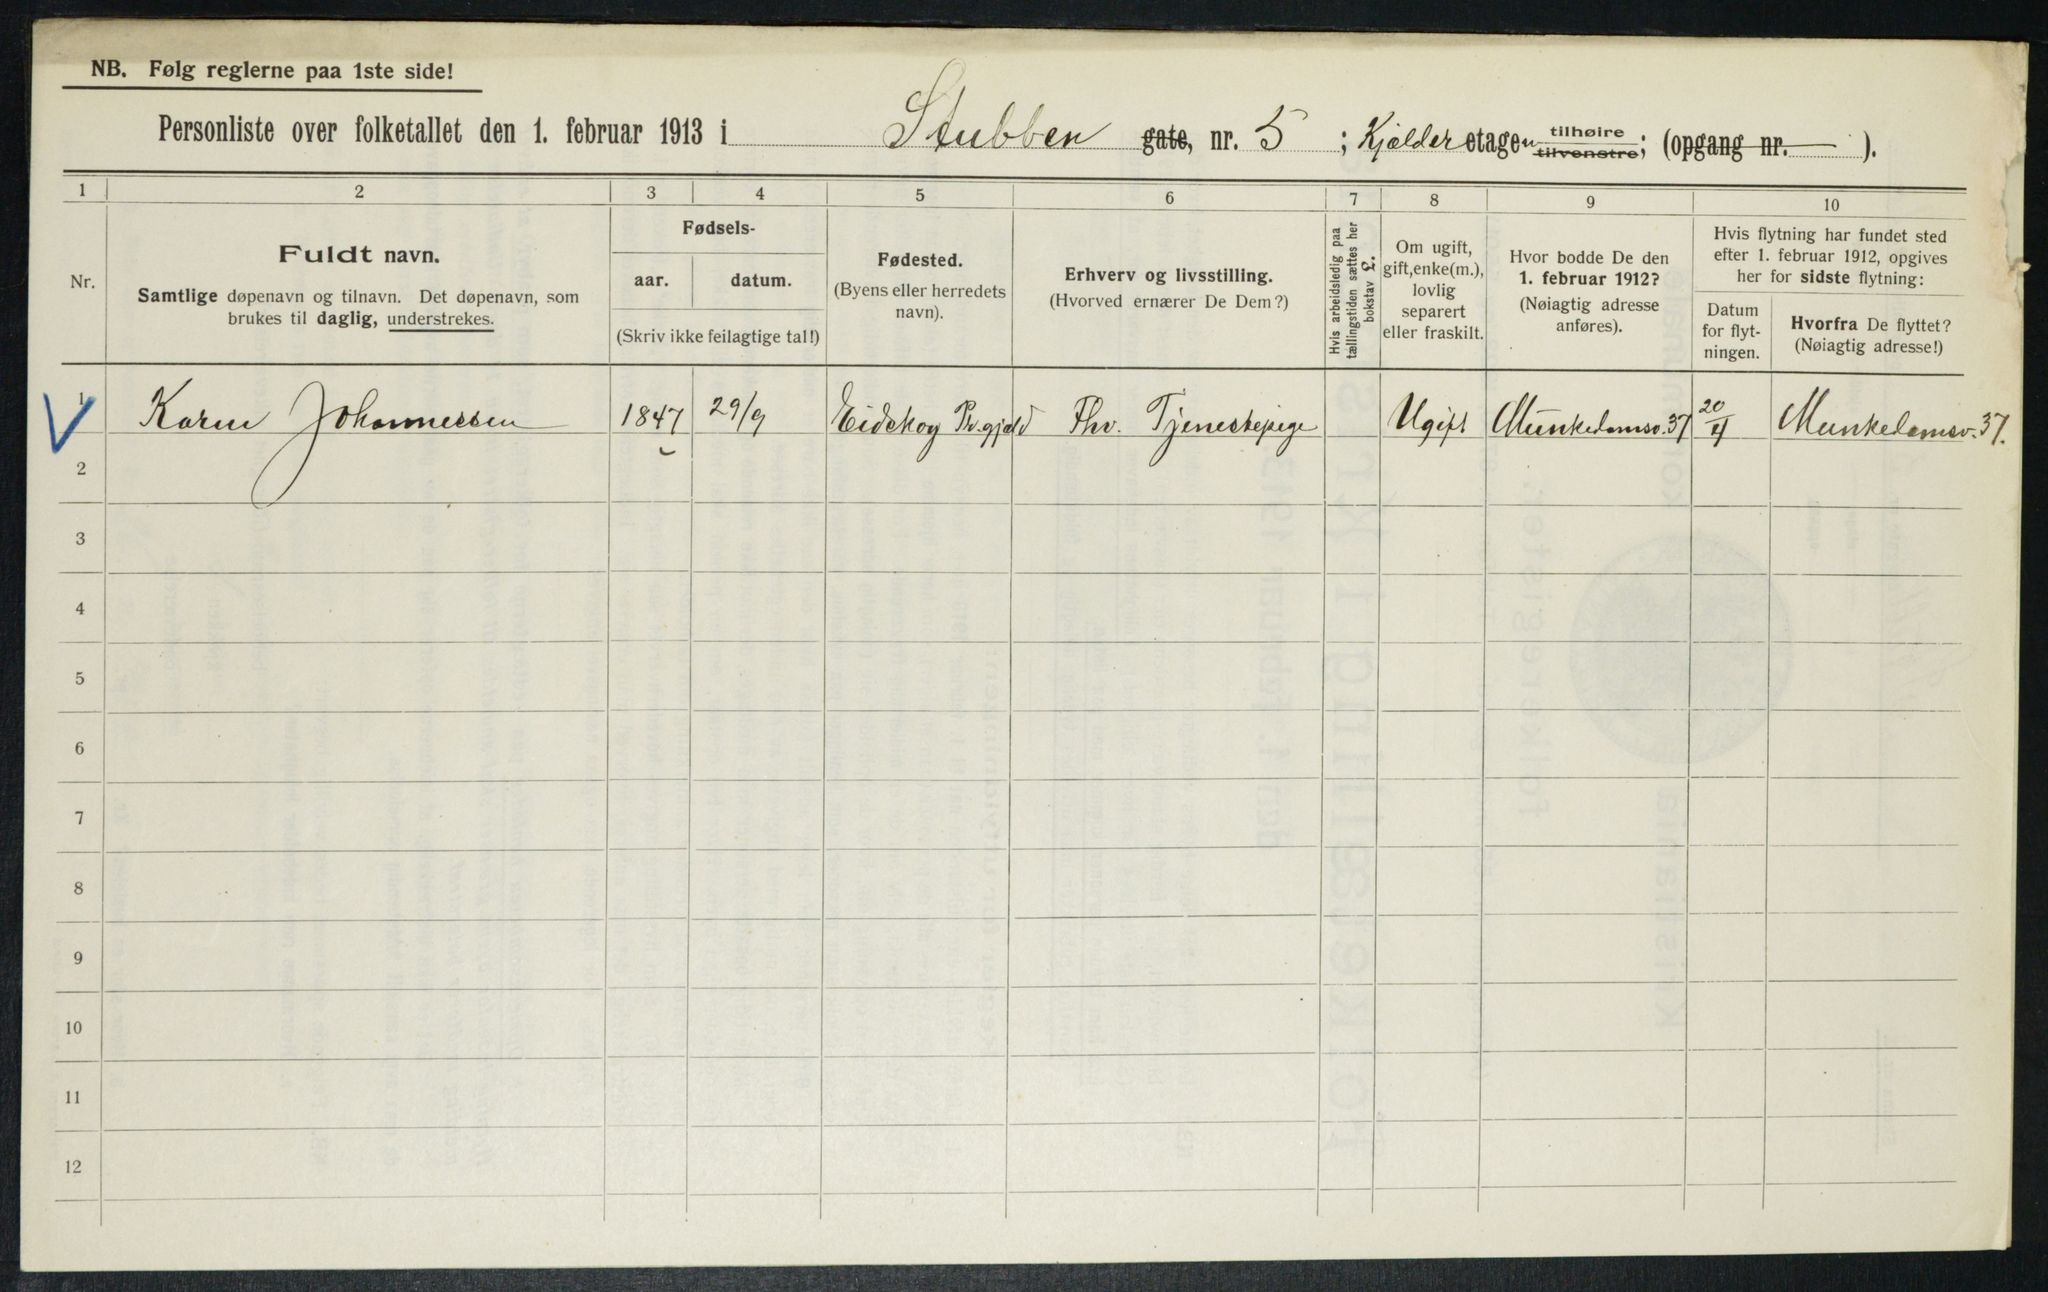 NB. Følg reglerne paa 1ste side!
Personliste over folketallet den 1. februar 1913 i Stubben gate, nr. 5 ; Kjælder etagen tilhøire tilvenstre; (opgang nr. — ).
1 2 3 4 5 6 7 8 9 10
Nr.
Fuldt navn.
Samtlige døpenavn og tilnavn. Det døpenavn, som
brukes til daglig, understrekes.
Fødsels-
aar. datum.
(Skriv ikke feilagtige tal!)
Fødested.
(Byens eller herredets
navn).
Erhverv og livsstilling.
(Hvorved ernærer De Dem?)
Hvis arbeidsledig paa
tællingstiden sættes her
bokstav L.
Om ugift,
gift, enke(m.),
lovlig
separert
eller fraskilt.
Hvor bodde De den
1. februar 1912?
(Nøiagtig adresse
anføres).
Hvis flytning har fundet sted
efter 1. februar 1912, opgives
her for sidste flytning:
Datum
for flyt-
ningen.
Hvorfra De flyttet?
(Nøiagtig adresse!)
1 Karen Johannessen 1847 29/9 Eidskog Pr.gjeld Fhv. Tjenestepige Ugift Munkedamsv. 37 20/4 Munkedamsv. 37.
2
3
4
5
6
7
8
9
10
11
12